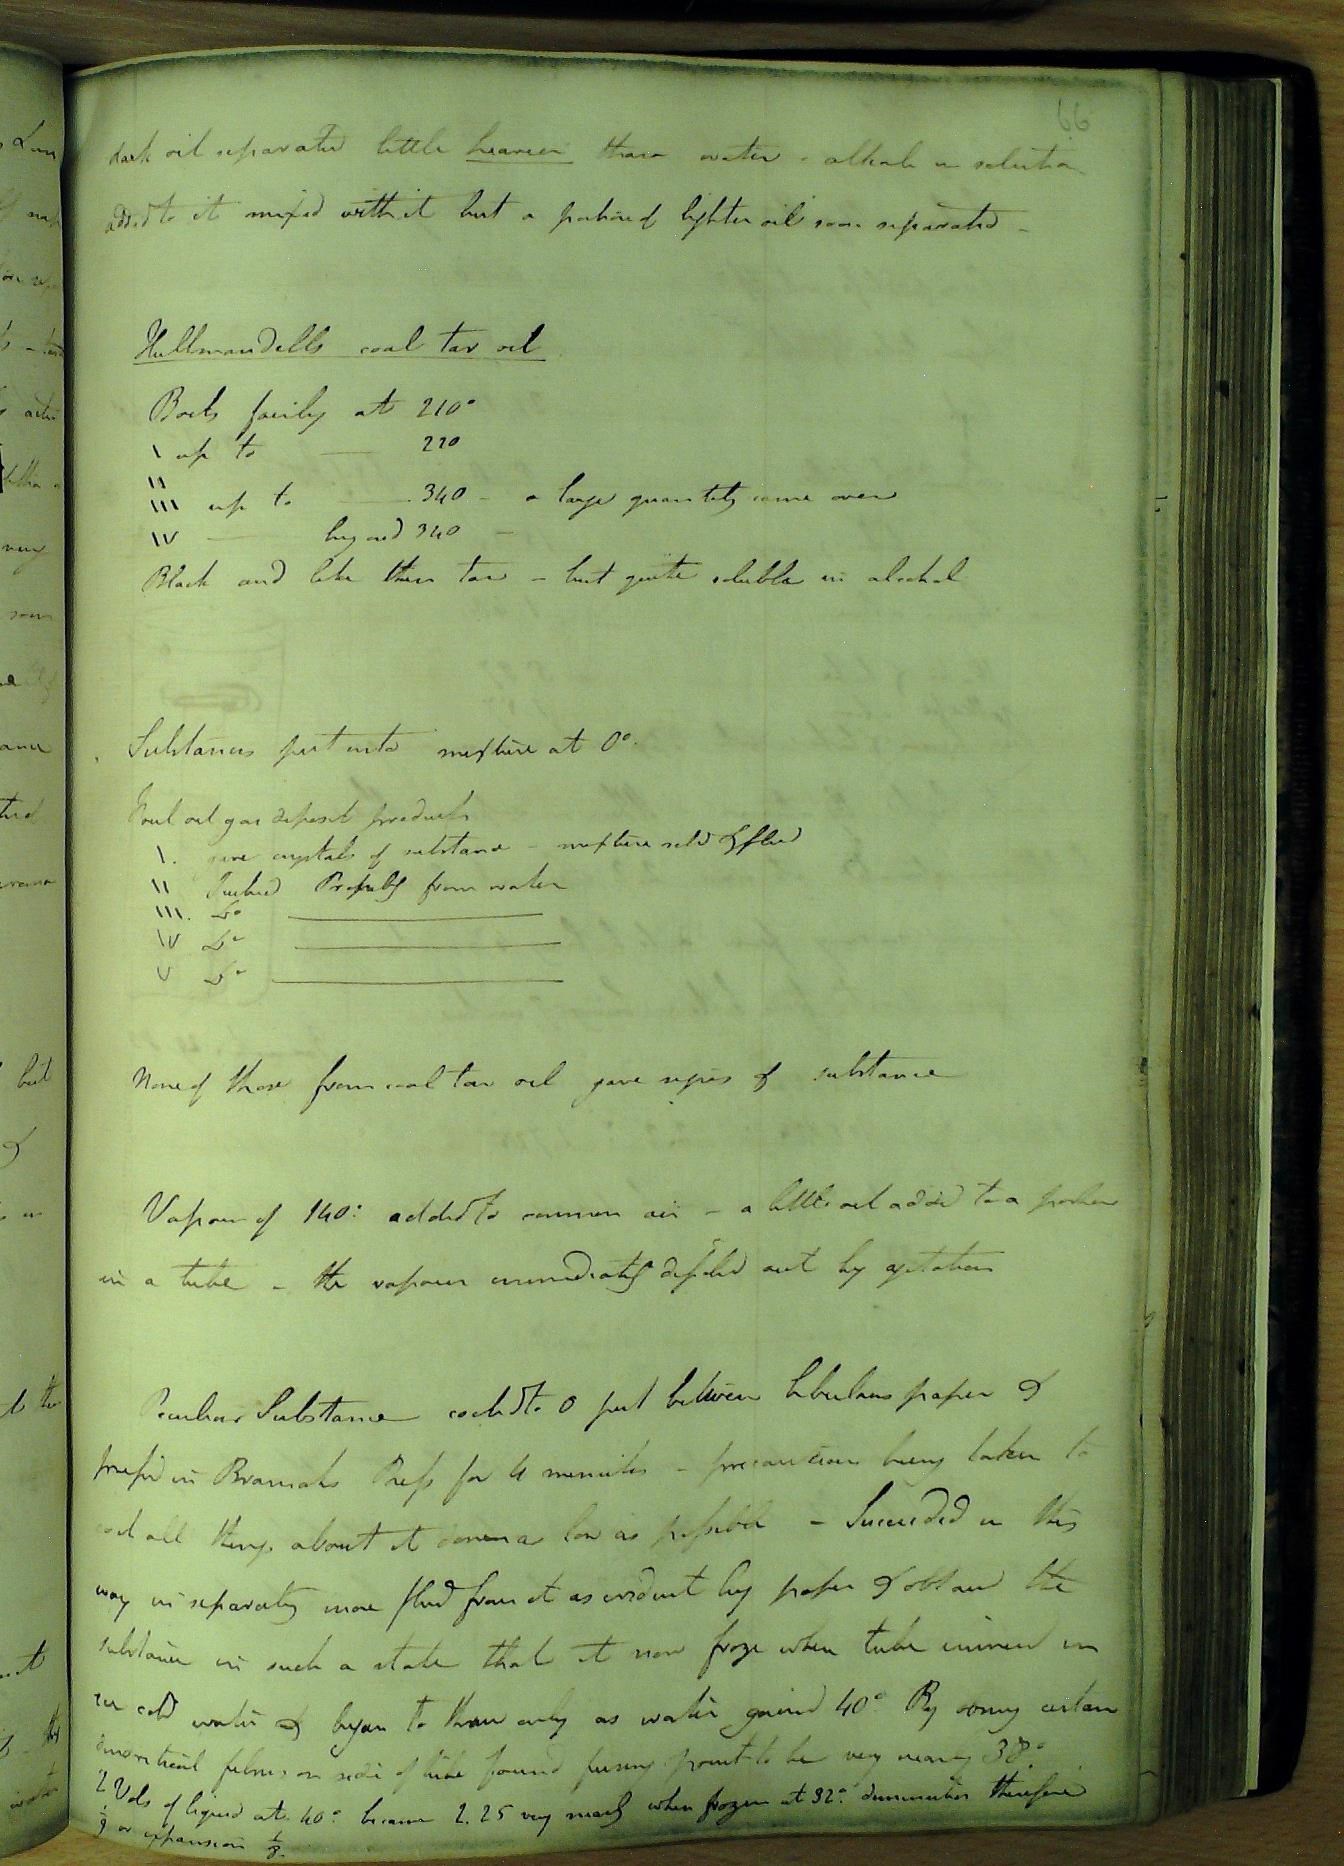 66
dark oil separated little heavier than water - alkali in solution
added to it mixed with it but a portion of lighter oil soon separated -
Hullmandells coal tar oil
Boils fairly at 210°
\ up to — 220
\\
\\\ up to — 340 - a large quantity came over
\V — beyond 340 -
Black and like thin tar - but quite soluble in alcohol
Substances put into mixture at 0°.
Foul oil gas deposit products
\. gave crystals of substance - mixture solid & fluid
\\ Probably from water
\\\. Do —
\V Do —
V Do —
None of those from coal tar oil gave signs of substance
Vapour of 140° added to common air - a little oil added to a portion
in a tube - the vapour immediately out by agitation
Peculiar Substance cooled to 0 put between bibulous paper &
pressed in Bramahs Press for 4 minutes - precautions being taken to
cool all things about it down as low as possible - Succeeded in this
way in separating more fluid from it as evident by paper & obtained the
substance in such a state that it now froze when tube immersed in
ice cold water & began to thaw only as water gained 40° By using certain
films on side of tube found fusing point to be very nearly 38°
2 Vols of liquid at 40° became 2.25 very nearly when frozen at 32° diminution therefore
1/9 or expansion 1/8.